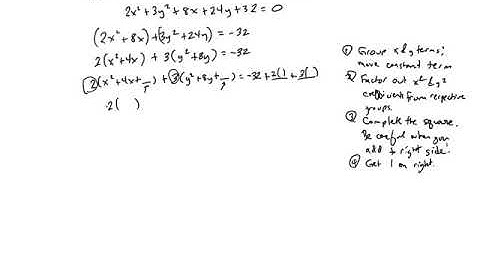 2x² + 3y² + 8x + 24y + 32 = 0
(2x² + 8x) + (3y² + 24y) = -32
2(x² + 4x) + 3(y² + 8y) = -32
2(x² + 4x + _) + 3(y² + 8y + _) = -32 + 2( ) + 3( )
2( )
① Group x & y terms;
move constant term
② Factor out x² & y²
coefficients from respective
groups.
③ Complete the square.
Be careful when you
add to right side!
④ Get 1 on right.